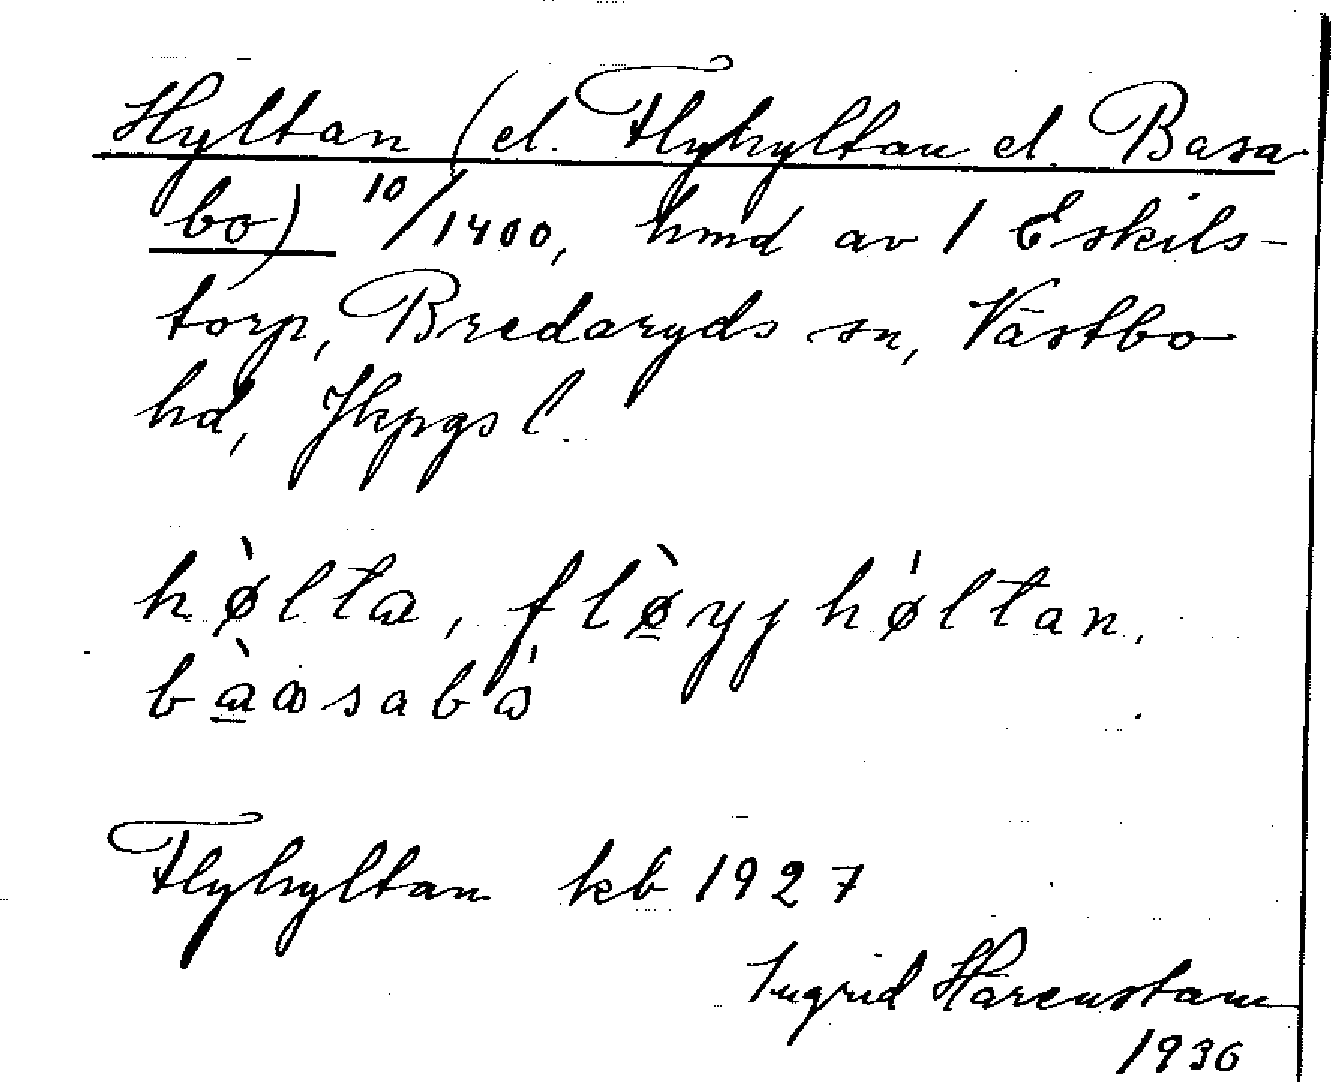 Hyltan (el. Flyhyltan el. Basa
bo) 10/1400, hmd av 1 Eskils-
torp, Bredaryds sn, Västbo
hd, Jkpgs l.
hø̀lta, flø̀yjhǿltan,
bàɑsabǻ
Flyhyltan kb 1927
Ingrid Härenstam
1936